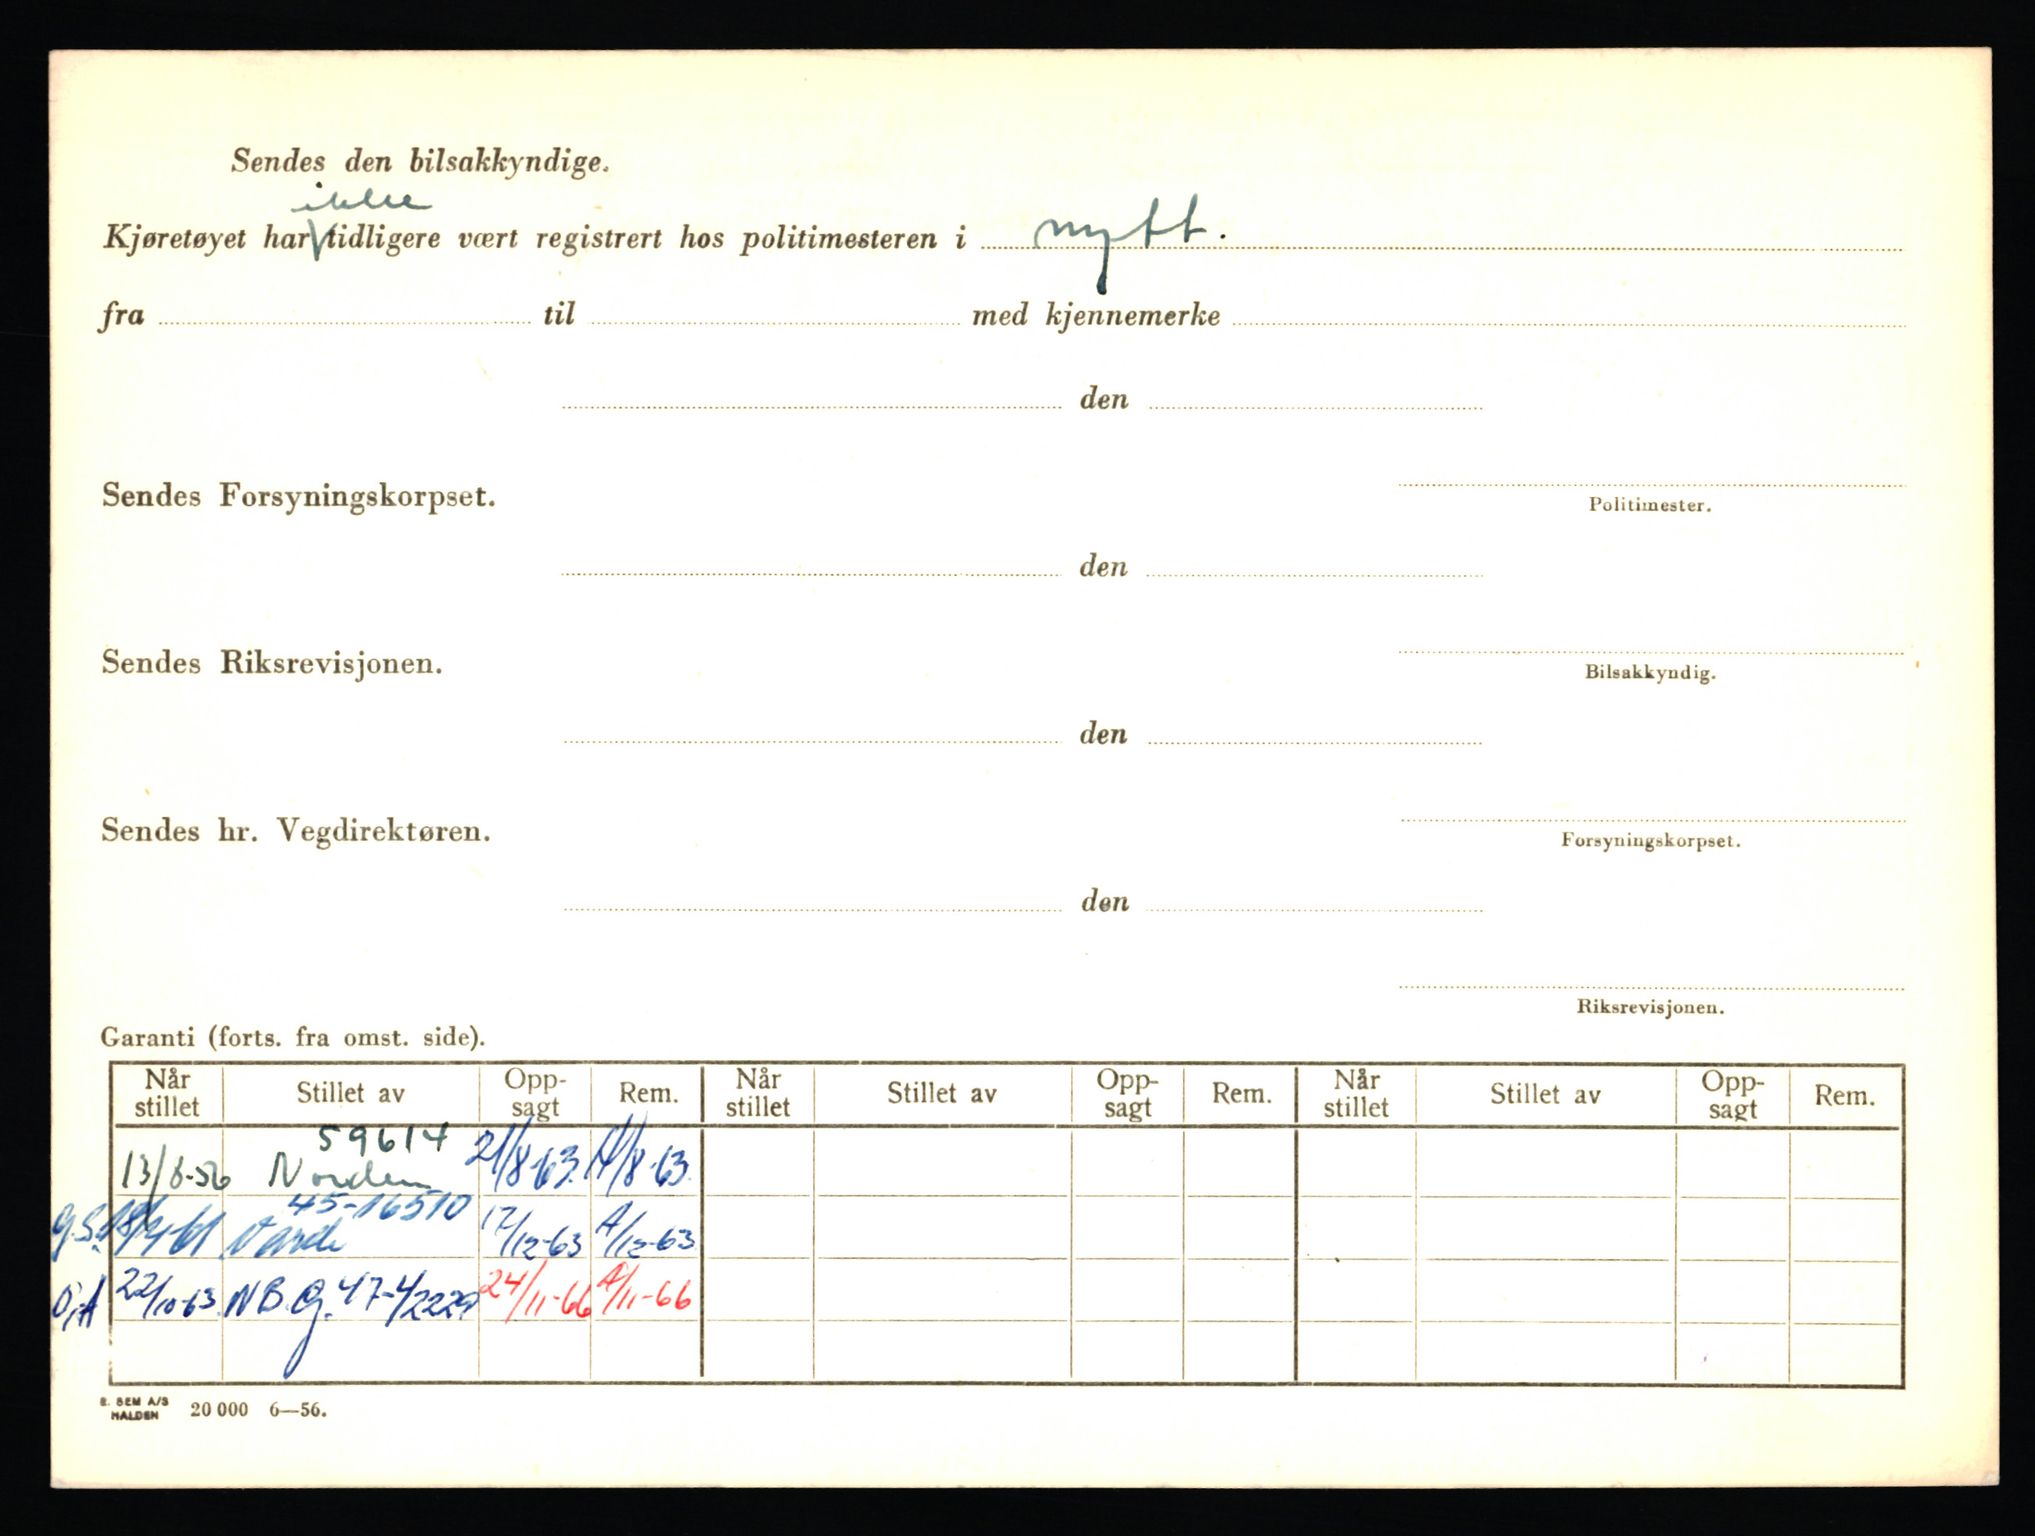 Sendes den bilsakkyndige.
ikke
Kjøretøyet har tidligere vært registrert hos politimesteren i nytt.
fra til med kjennemerke
den
Sendes Forsyningskorpset.
Politimester.
den
Sendes Riksrevisjonen.
Bilsakkyndig.
den
Sendes hr. Vegdirektøren.
Forsyningskorpset.
den
Riksrevisjonen.
Garanti (forts. fra omst. side).
Når stillet Stillet av Opp-sagt Rem. Når stillet Stillet av Opp-sagt Rem. Når stillet Stillet av Opp-sagt Rem.
59614
13/8-56 Norden 21/8-63. /8-63.
45-16510
Varde 17/12-63 A/12-63
22/10-63. N B. G. 47-4/2229 24/11-66 A/11-66
E. SEM A/S
HALDEN 20 000 6—56.